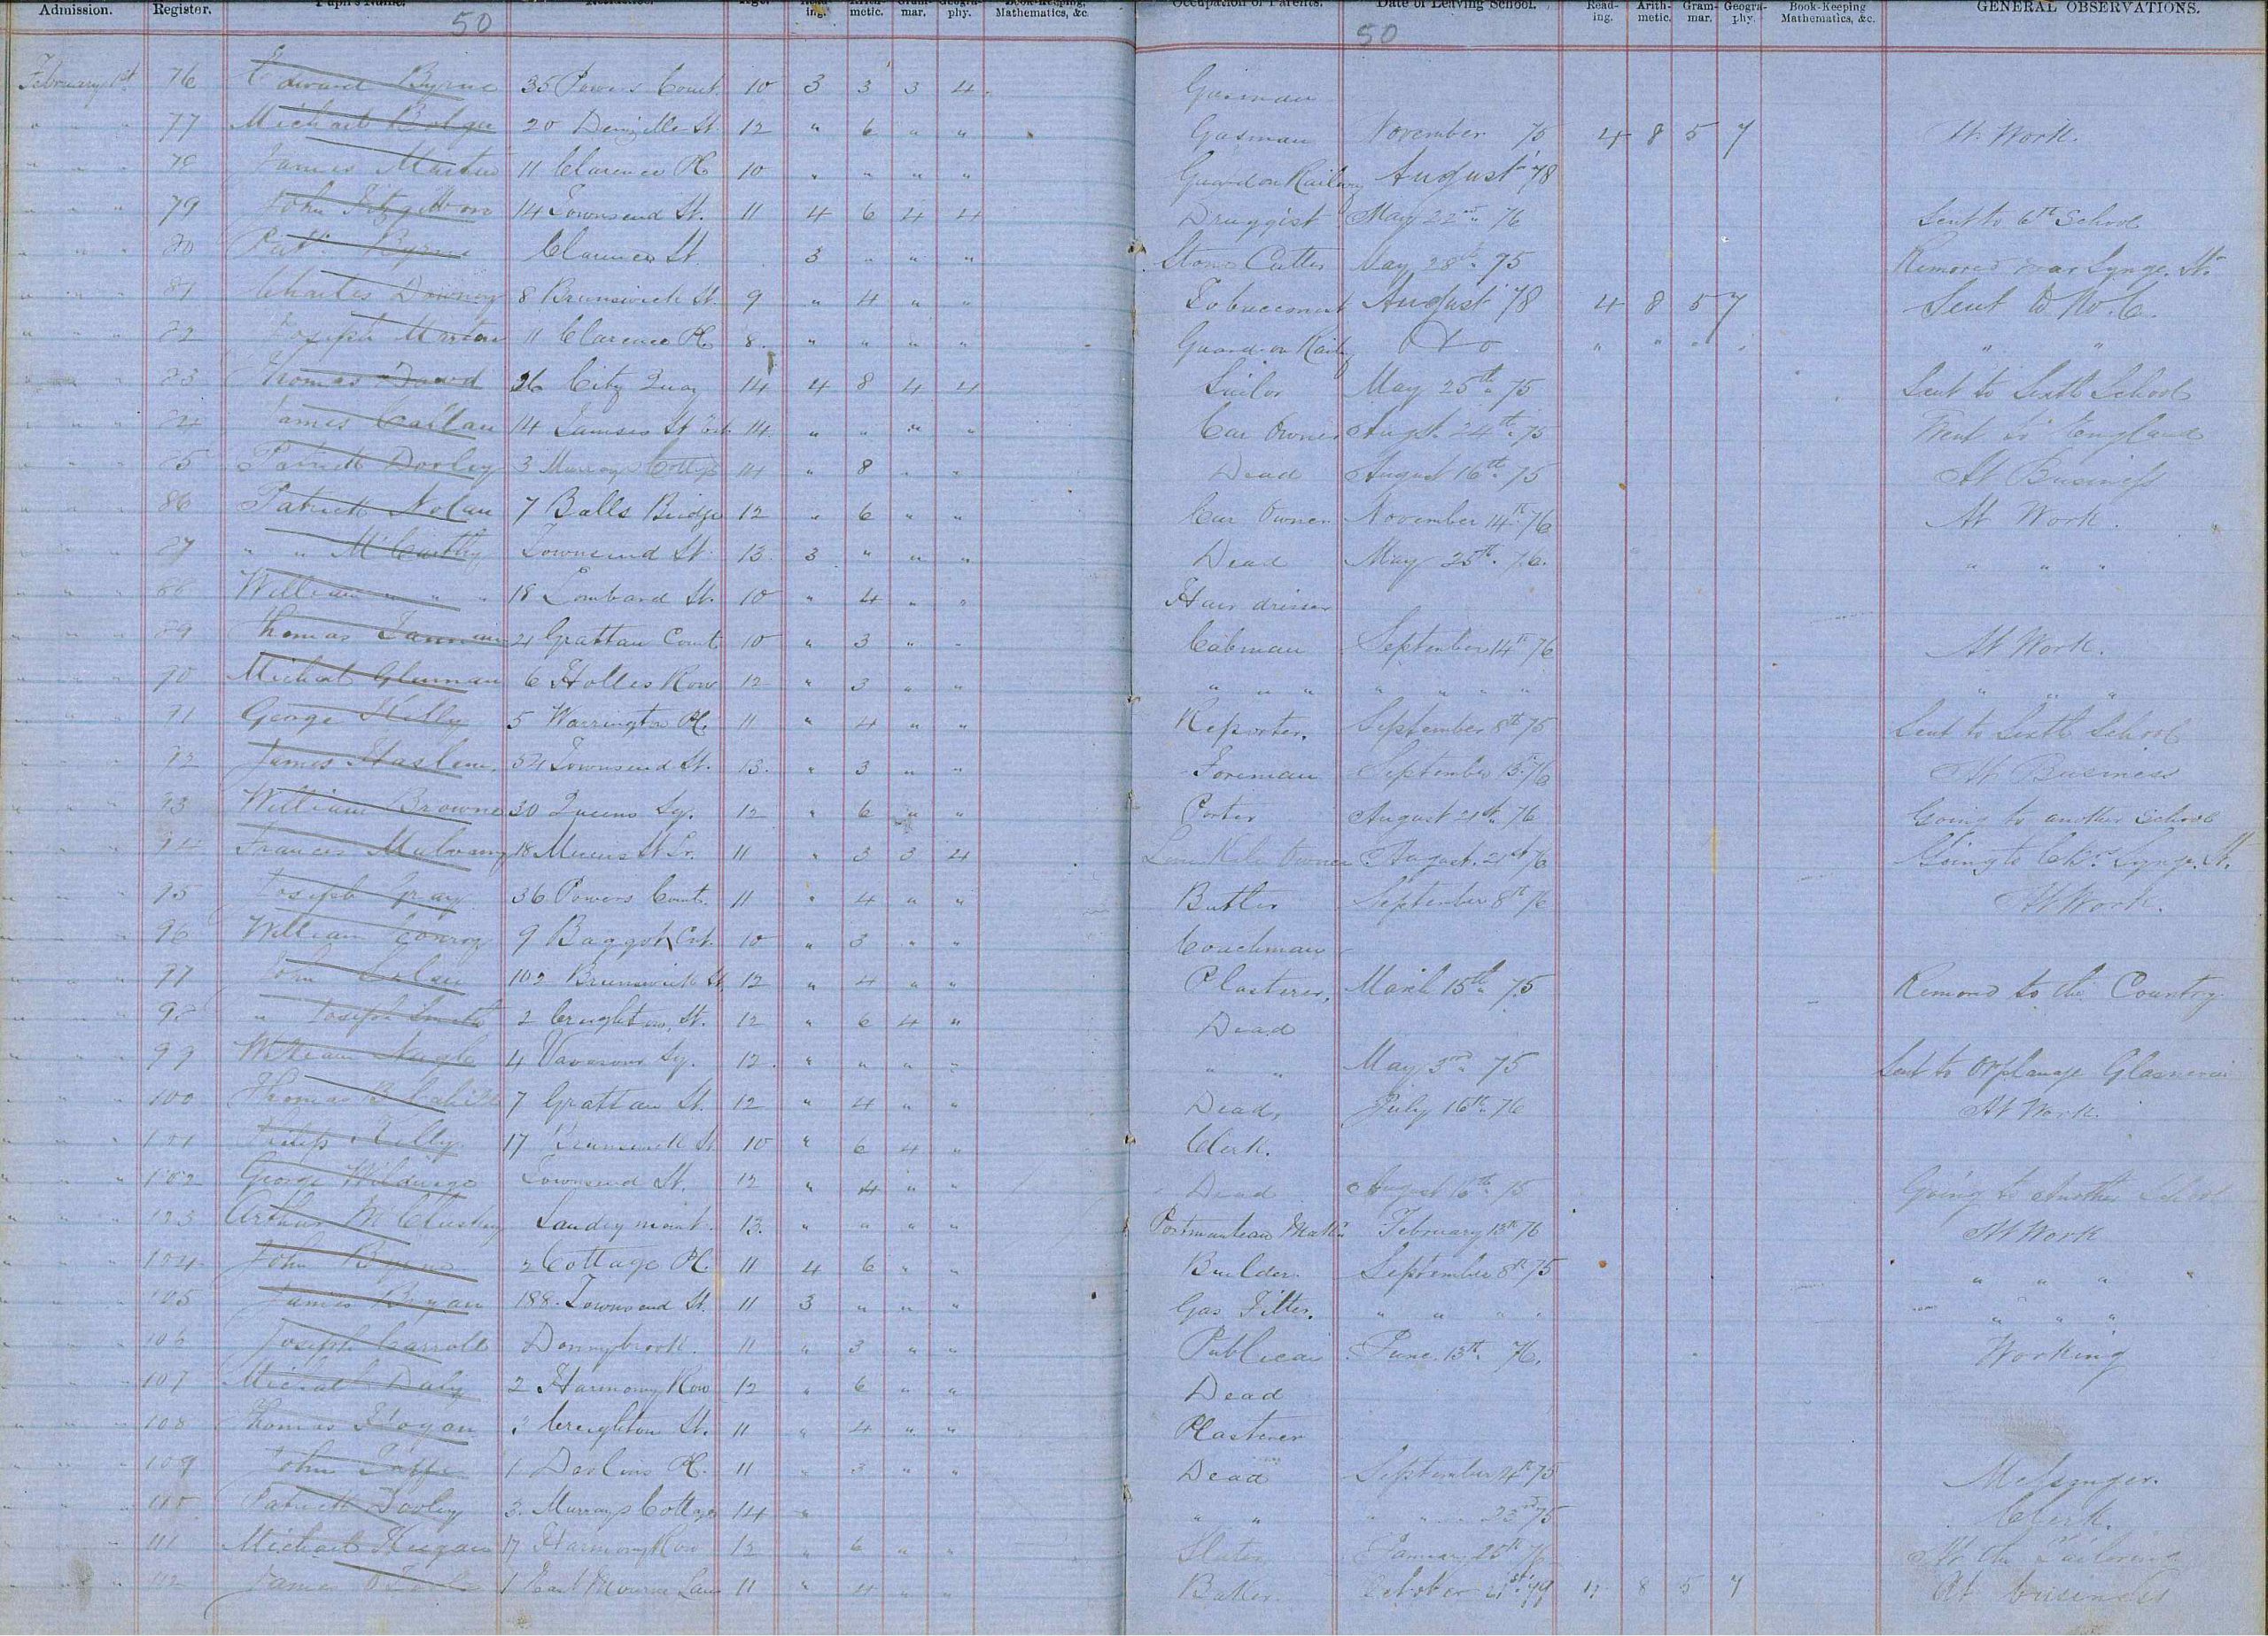 Admission. Register. Pupil's Name. Residence. Age. Read-ing. Arith-metic. Gram-mar. Geogra-phy. Book-Keeping, Mathematics, &c. Occupation of Parents. Date of Leaving School. Read-ing. Arith-metic. Gram-mar. Geogra-phy. Book-Keeping Mathematics, &c. GENERAL OBSERVATIONS.
50 50
February 1st 76 Edward Byrne 35 Powers Court 10 3 3 3 4
" " " 77 Michael 20 Denzille St. 12 " 6 " " Gasman November 75 4 8 5 7 At Work.
" " " 78 James Martin 11 Clarence Pl 10 " " " " Guard on Railway August 78
" " " 79 John Fitzgibbon 14 Townsend St. 11 4 6 4 4 Druggist May 22nd 76 Sent to 6th School
" " " 80 Patk Byrne Clarence St. 3 " " " Stone Cutter May 28th 75 Removed near Synge St.
" " " 81 Charles Downey 8 Brunswick St. 9 " 4 " " Tobacconist August 78 4 8 5 7 Sent to
" " " 82 Joseph Martin 11 Clarence Pl 8 " " " " Guard on Railway Do " " " " " "
" " " 83 Thomas Dowd 26 City Quay 14 4 8 4 4 Sailor May 25th 75 Sent to Sixth School
" " " 84 James 14 St 14 " " " " Car Owner Augst. 24th 75 Went to England
" " " 85 Patrick Dooley 3 Murrays Cottgs 14 " 8 " " Dead August 16th 75 At Business
" " " 86 Patrick Nolan 7 Balls Bridge 12 " 6 " " Car Owner November 14th 76 At Work.
" " " 87 " " McCarthy Townsend St. 13 3 " " " Dead May 25th 76. " " "
" " " 88 William " " 18 Lombard St. 10 " 4 " " Hair dresser
" " " 89 Thomas 21 Grattan Court 10 " 3 " " Cabman September 14th 76 At Work.
" " " 90 Michael Glennan 6 Holles Row 12 " 3 " " " " " " " " " " " "
" " " 91 George Kelly 5 Warrington Pl. 11 " 4 " " Reporter. September 8th 75 Sent to Sixth School
" " " 92 James Haslem. Townsend St. 13. " 3 " " Foreman September 13th 76 At Business
" " " 93 William Browne 30 Queens Sq. 12 " 6 " " Porter August 21st 76 Going to another School
" " " 94 Francis Mulvany 18 11 " 3 3 4 Owner August. 21st 76 Going to Synge St.
" " " 95 Joseph Gray 36 Powers Court. 11 " 4 " " Butler September 8th 76 At Work.
" " " 96 William Conroy 9 Baggot Crt. 10 " 3 " " Coachman
" " " 97 John 102 Brunswick St. 12 " 4 " " Plasterer. March 15th 75 Removd to the Country.
" " " 98 " Joseph Smith 2 Creighton St. 12 " 6 4 " Dead
" " " 99 William Nagle 4 Vavasour Sq. 12. " " " " " " May 3rd 75 Sent to Orphanage Glasnevin
" " " 100 Thomas Cahill 7 Grattan St. 12 " 4 " " Dead, July 16th 76 At Work.
" " " 101 Philip Kelly 17 Brunswick St 10 " 6 4 " Clerk.
" " " 102 George Townsend St. 12 " 4 " " Dead August 16th 75 Going to another School
" " " 103 Arthur McCluskey Sandymount. 13. " " " " Portmanteau Makr. February 13th 76 At Work
" " " 104 John Byrne 2 Cottage Pl. 11 4 6 " " Builder. September 8th 75 " " "
" " " 105 James Bryan 188. Townsend St. 11 3 " " " Gas Fitter. " " " " " " "
" " " 106 Joseph Carroll Donnybrook. 11 " 3 " " Publican June 13th 76. Working
" " " 107 Michael Daly 2 Harmony Row 12 " 6 " " Dead
" " " 108 Thomas Hogan Creighton St. 11 " 4 " " Plasterer
" " " 109 John 1 Devlins Pl. 11 " 3 " " Dead September 75 Messenger.
" " " 110 Patrick Dooley 3. Murrays Cottages 14 " " " " " 75 Clerk.
" " " 111 Michael Keegan 17 Harmony Row 12 " 6 " " Slater January 76
" " " 112 James 1 East Lane 11 " 4 " " Baker. October 21st 8 5 7 At business